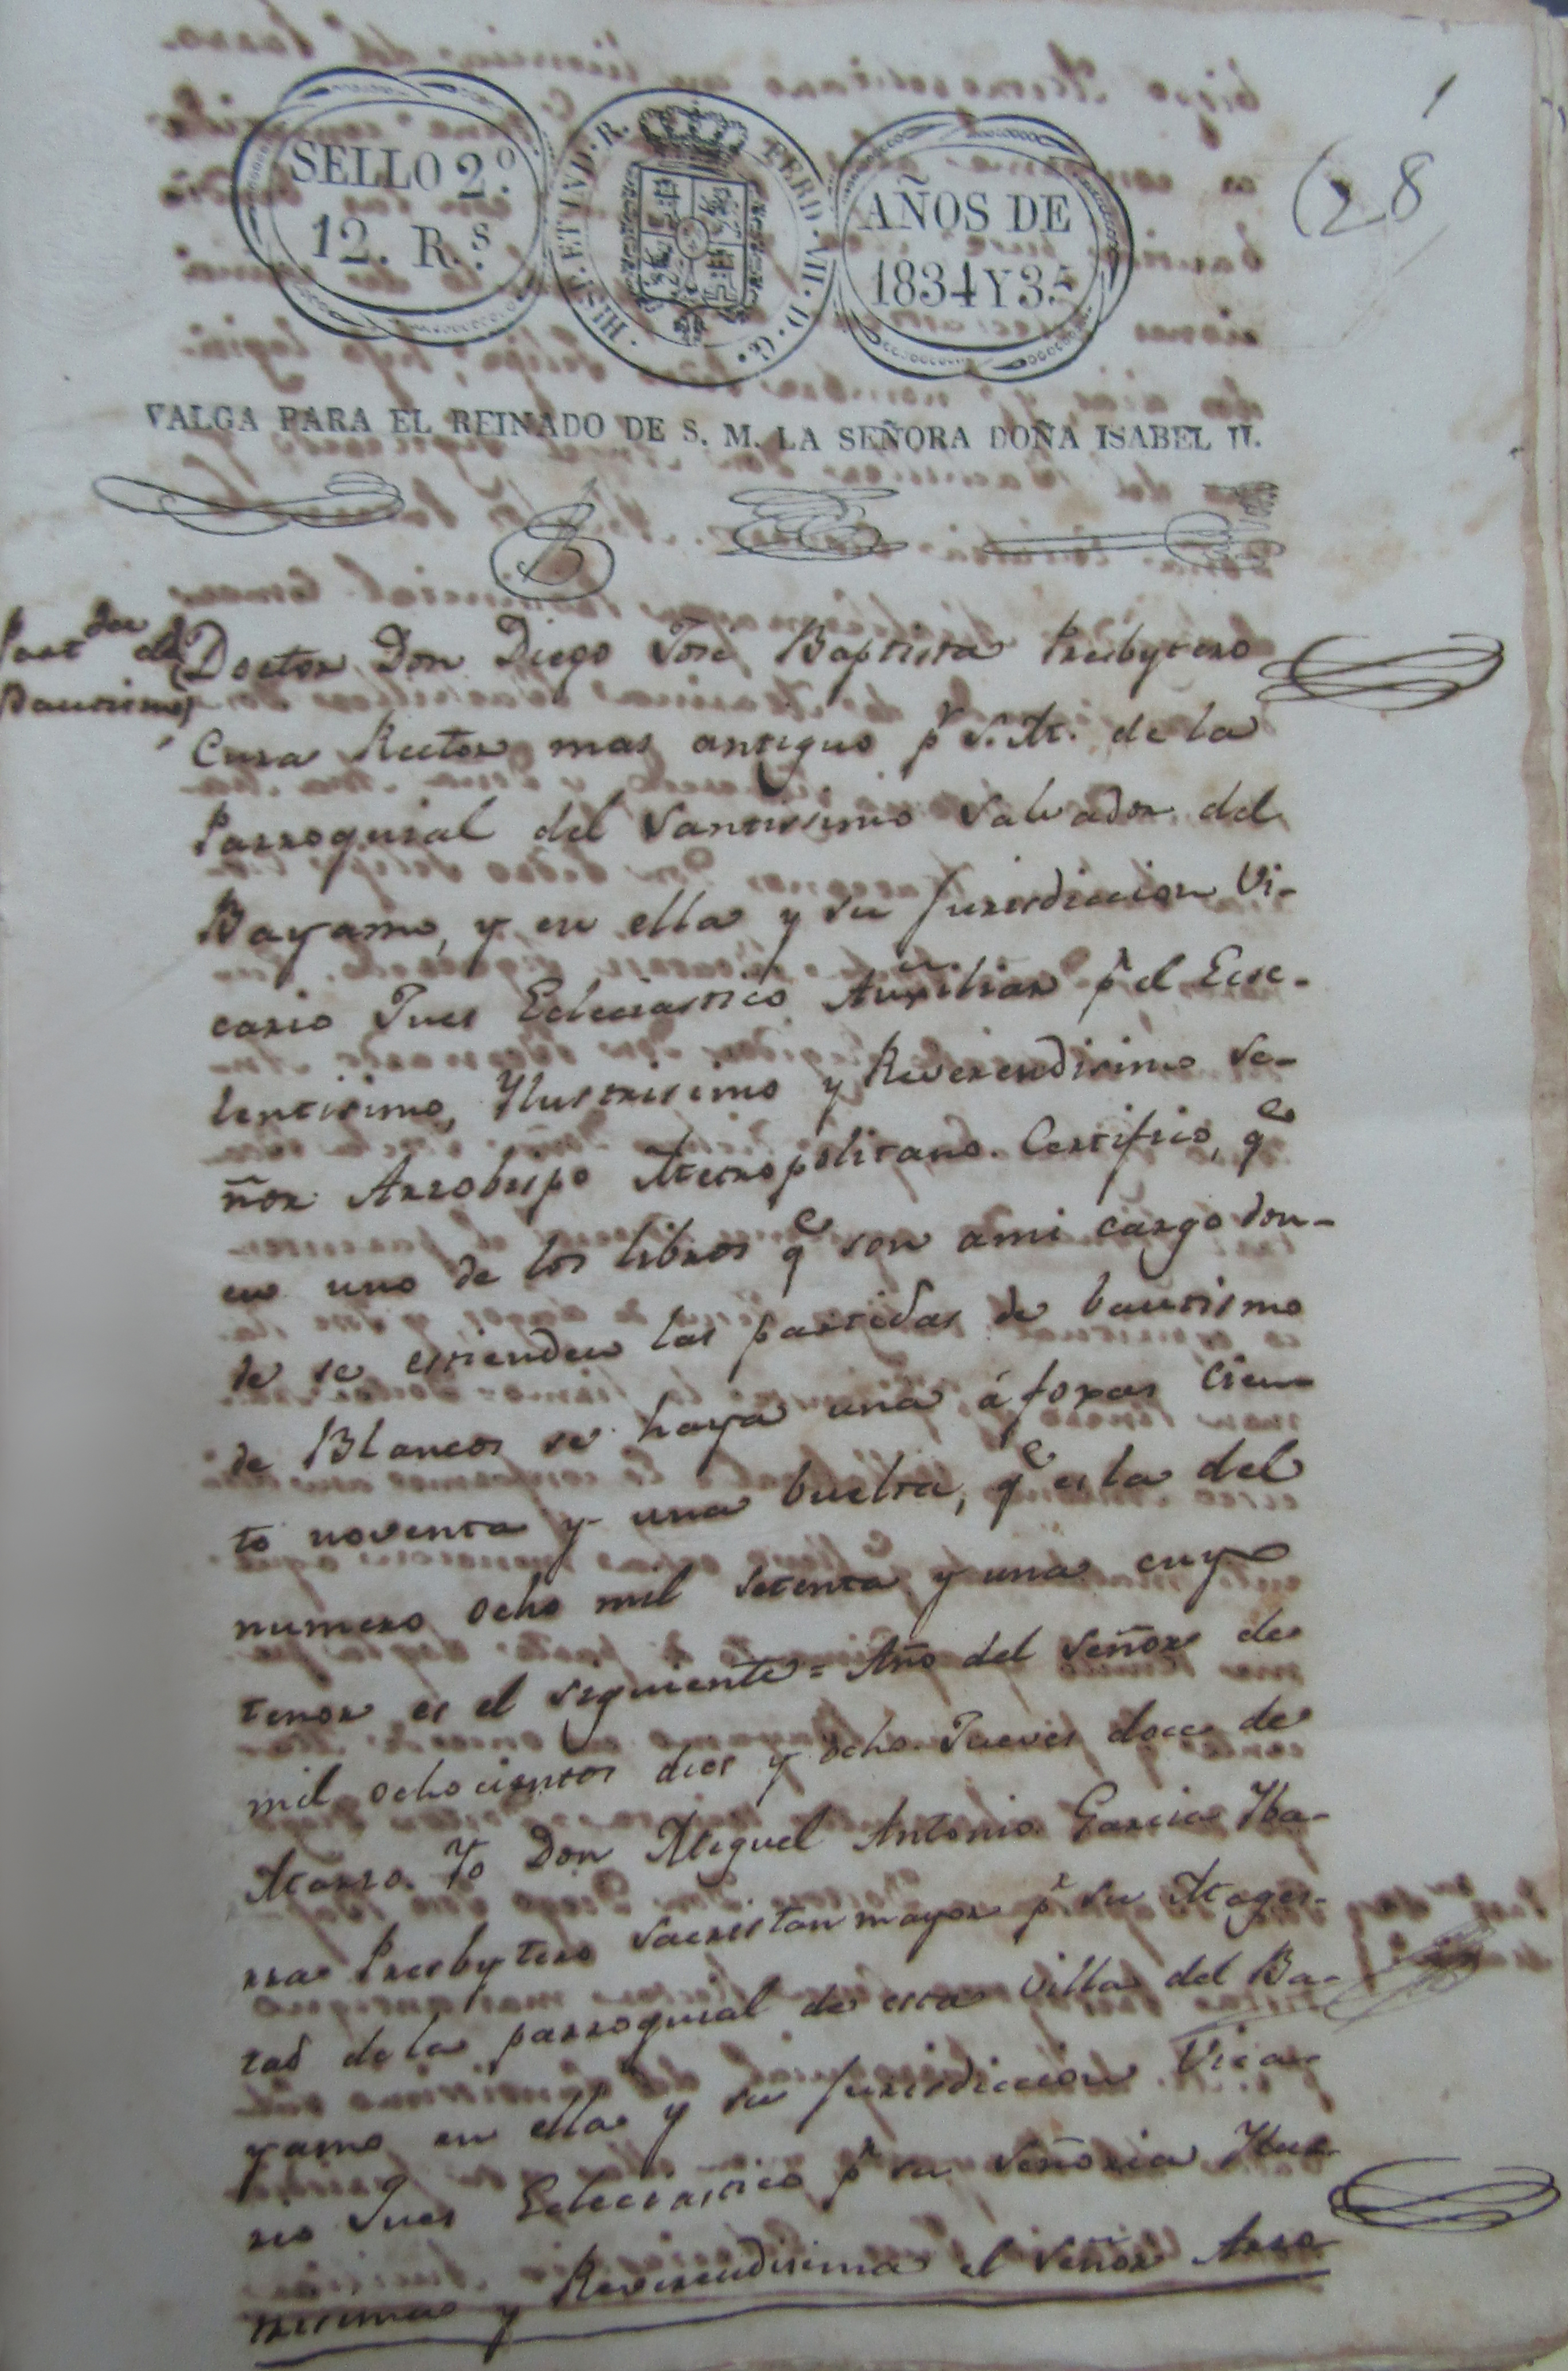 1
28
SELLO 2.º
12. R.s
HISP. ET IND. R. FERD. VII. D. G.
AÑOS DE
1834 Y 35
VALGA PARA EL REINADO DE S. M. LA SEÑORA DOÑA ISABEL II.
Bautismo
Doctor Don Diego José Baptista Presbytero
Cura Rector mas antiguo pr S. M. de la
Parroquial del Santissimo Salvador del
Bayamo, y en ella y su Jurisdiccion Vi-
cario Jues Eclesiastico Auxiliar pr el Ecse-
lentisimo, Ylustrisimo y Reverendisimo Se-
ñor Arzobispo Metropolitano. Certifico, qe
en uno de los libros qe son ami cargo don-
de se estienden las partidas de bautismo
de Blancos se haya una á foxas Cien-
to noventa y una buelta, qe es la del
numero ocho mil setenta y una cuyo
tenor es el siguiente = Año del Señor de
mil ochocientos dies y ocho. Jueves doce de
Marzo. Yo Don Miguel Antonio Garcia Yba-
rra Presbytero Sacristan mayor pr su Mages-
tad de la parroquial de esta Villa del Ba-
yamo en ella y su Jurisdiccion Vica-
rio Jues Eclesiastico pr su Señoria Ylus-
trisima y Reverendisima el Señor Arzo